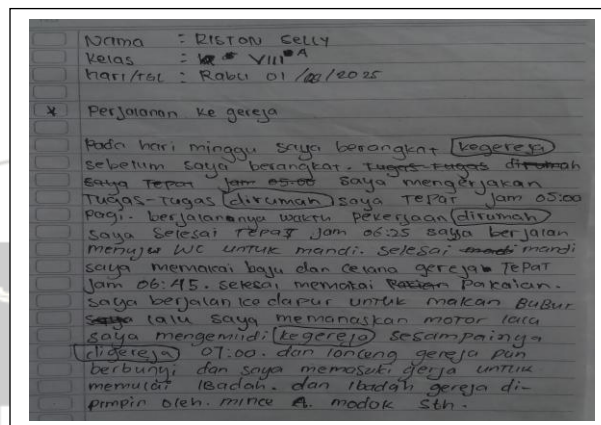 Nama : RISTON SELLY
Kelas : VIII A
Hari/TGL : Rabu 01/02/2025
* Perjalanan ke gereja
Pada hari minggu saya berangkat kegereja
sebelum saya berangkat. Tugas-Tugas dirumah
saya Tepat jam 05:00 saya mengerjakan
Tugas-Tugas dirumah saya Tepat jam 05:00
Pagi. berjalananya waktu Pekerjaan dirumah
saya Selesai Tepat jam 06:25 saya berjalan
menuju WC untuk mandi. selesai mandi mandi
saya memakai baju dan celana gereja TePaT
Jam 06:45. selesai memakai Pakaian.
saya berjalan ke dapur untuk makan BuBur
saya lalu saya memanaskan motor lalu
saya mengemidi kegereja sesampainya
digereja 07:00. dan lonceng gereja pun
berbunyi dan saya memasuki gerja untuk
memulai IBadah. dan Ibadah gereja di-
pimpin oleh. mince A. modok Sth.